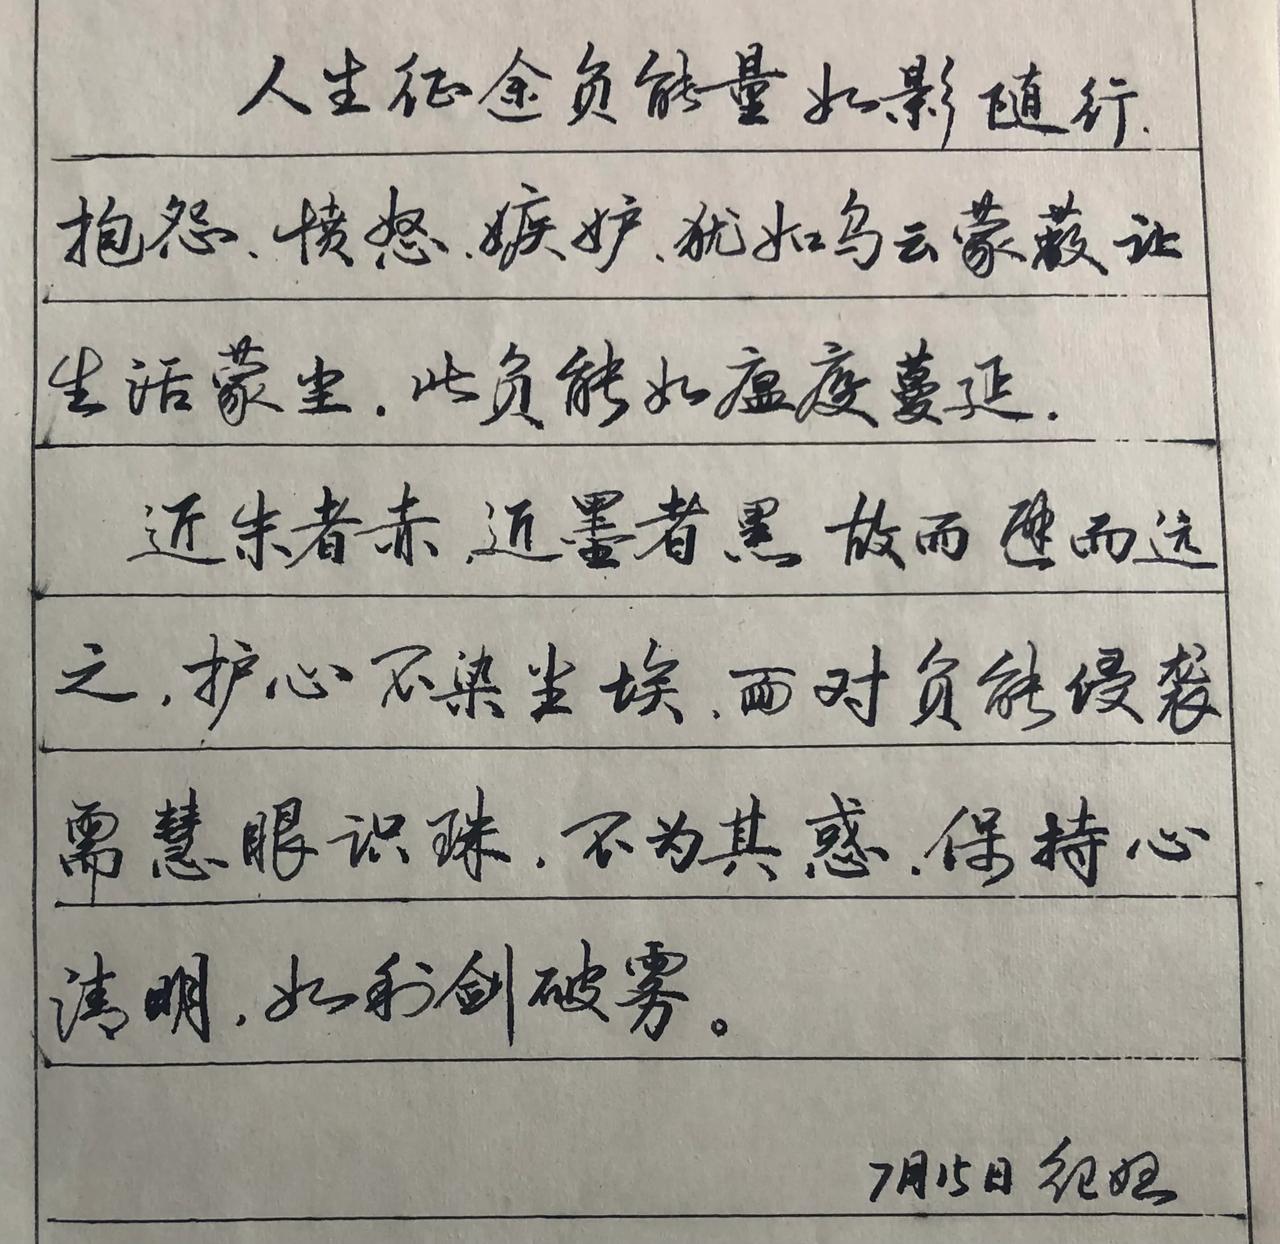 人生征途负能量如影随行.
抱怨、愤怒、嫉妒、犹如乌云蒙蔽让
生活蒙尘.此负能如瘟疫蔓延.
近朱者赤.近墨者黑 故而避而远
之,护心不染尘埃.面对负能侵袭
需慧眼识珠.不为其惑.保持心
清明,如利剑破雾。
7月15日